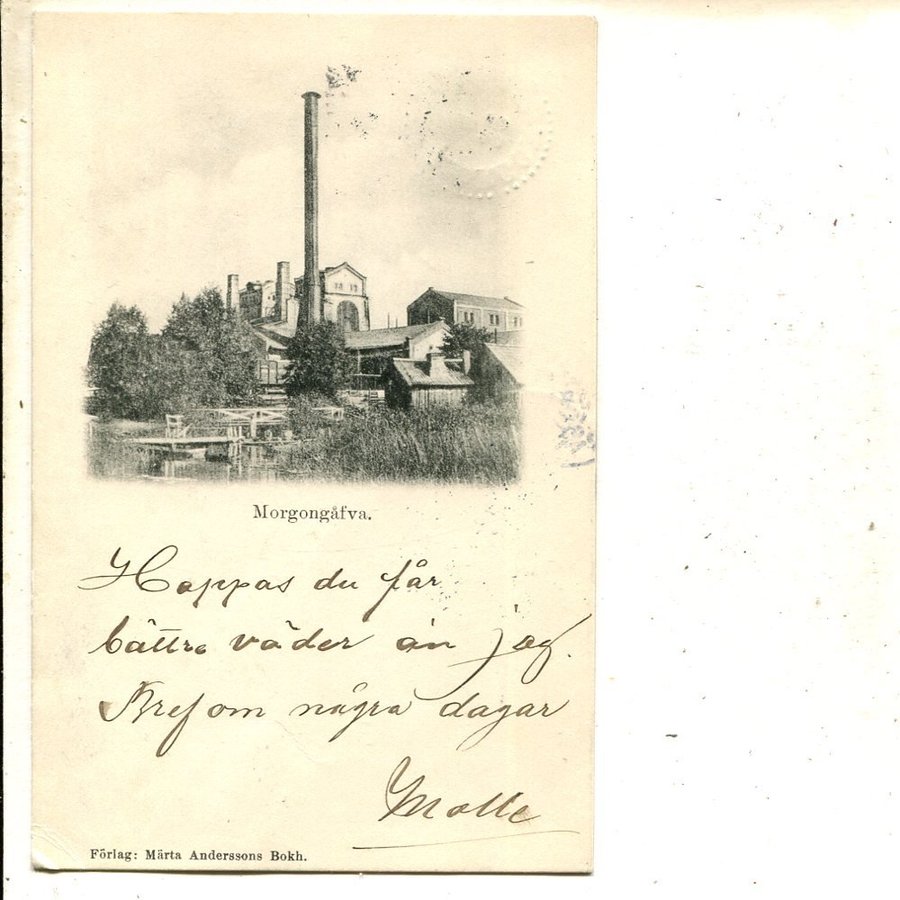 Morgongåfva.
Hoppas du får
bättre väder än jag.
Bref om några dagar
Malle
Förlag: Märta Anderssons Bokh.